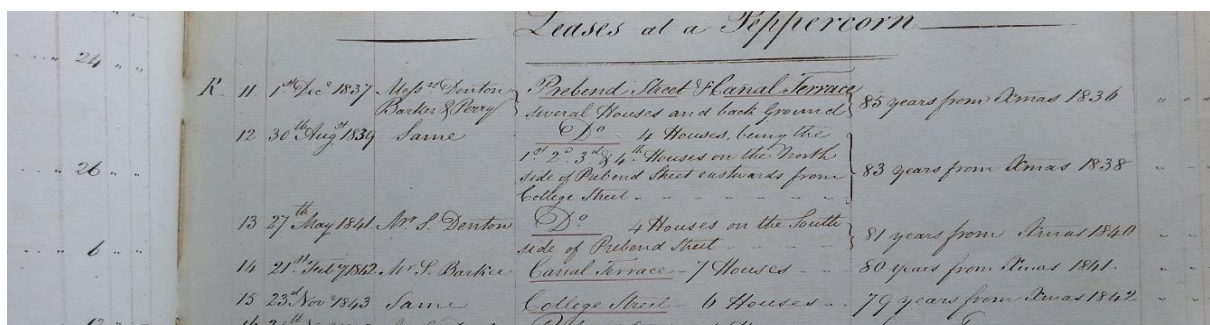 Leases at a Peppercorn
24
R. 11 1st Decr 1837 Messrs Denton Prebend Street & Canal Terrace
Barker & Perry several Houses and back Ground 85 years from Xmas 1836
12 30th Augst 1839 Same Do 4 Houses, being the
1st 2d 3d & 4th Houses on the North
26 side of Prebend Street eastwards from 83 years from Xmas 1838
College Street
13 27th May 1841 Mr S. Denton Do 4 Houses on the South
6 side of Prebend Street 81 years from Xmas 1840
14 21st Feby 1842 Mr S. Barker Canal Terrace - 7 Houses 80 years from Xmas 1841.
15 23d Novr 1843 Same College Street - 6 Houses 79 years from Xmas 1842